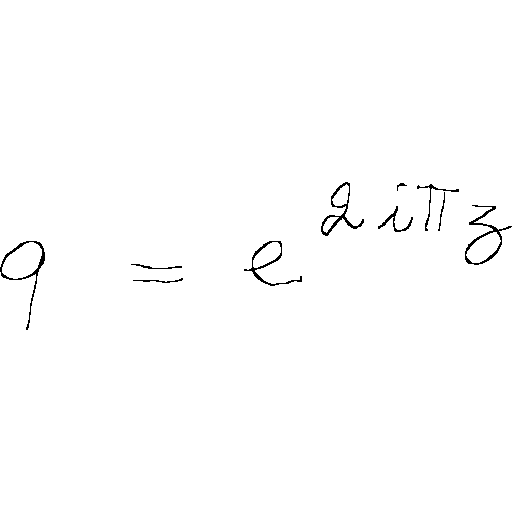 q = e^{2iπz}